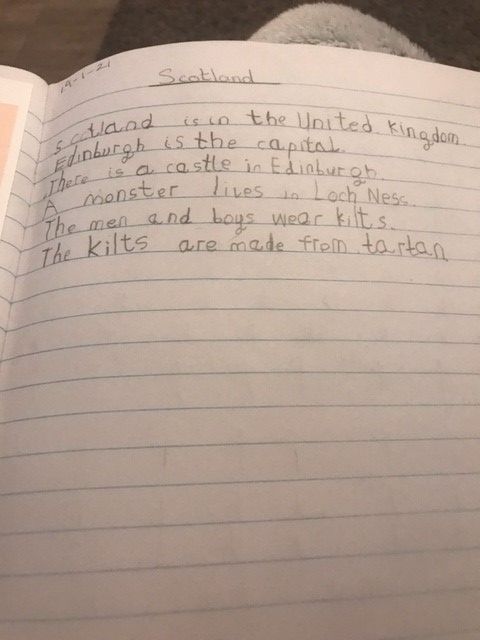 19-1-21
Scotland
Scotland is in the United Kingdom.
Edinburgh is the capital.
There is a castle in Edinburgh.
A monster lives in Loch Ness.
The men and boys wear kilts.
The kilts are made from tartan